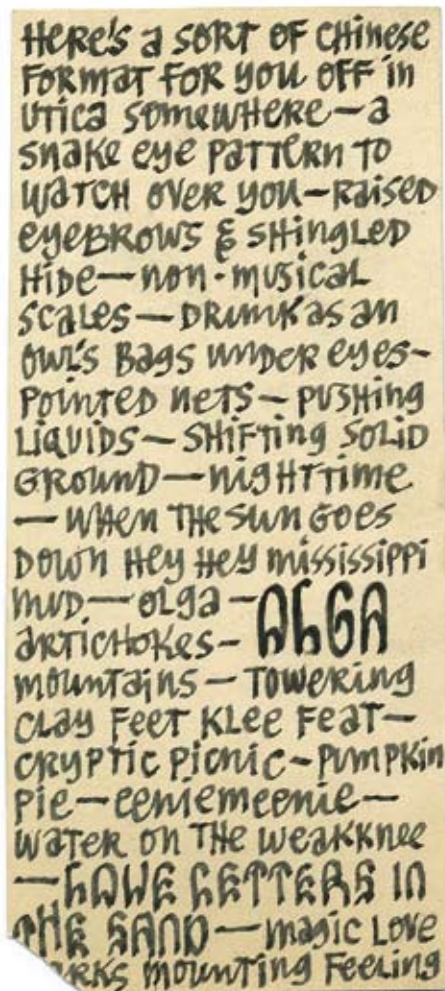 HERE'S a SORT OF CHINESE
FORMAT FOR YOU OFF in
UTICA SOMEWHERE—a
SNAKE EYE PATTERN TO
WATCH OVER YOU—RAISED
EYEBROWS & SHINGLED
HIDE—NON-MUSICAL
SCALES—DRUNK AS AN
OWL'S BAGS UNDER EYES-
POINTED NETS—PUSHING
LIQUIDS—SHIFTING SOLID
GROUND—NIGHTTIME
—WHEN THE SUN GOES
DOWN HEY HEY MISSISSIPPI
MUD—OLGA—ALGA
ARTICHOKES-
MOUNTAINS—TOWERING
CLAY FEET KLEE FEAT—
CRYPTIC PICNIC-PUMPKIN
PIE—EENIEMEENIE—
WATER ON THE WEAKKNEE
—LOVE LETTERS IN
THE SAND—MAGIC LOVE
RKS MOUNTING FEELING